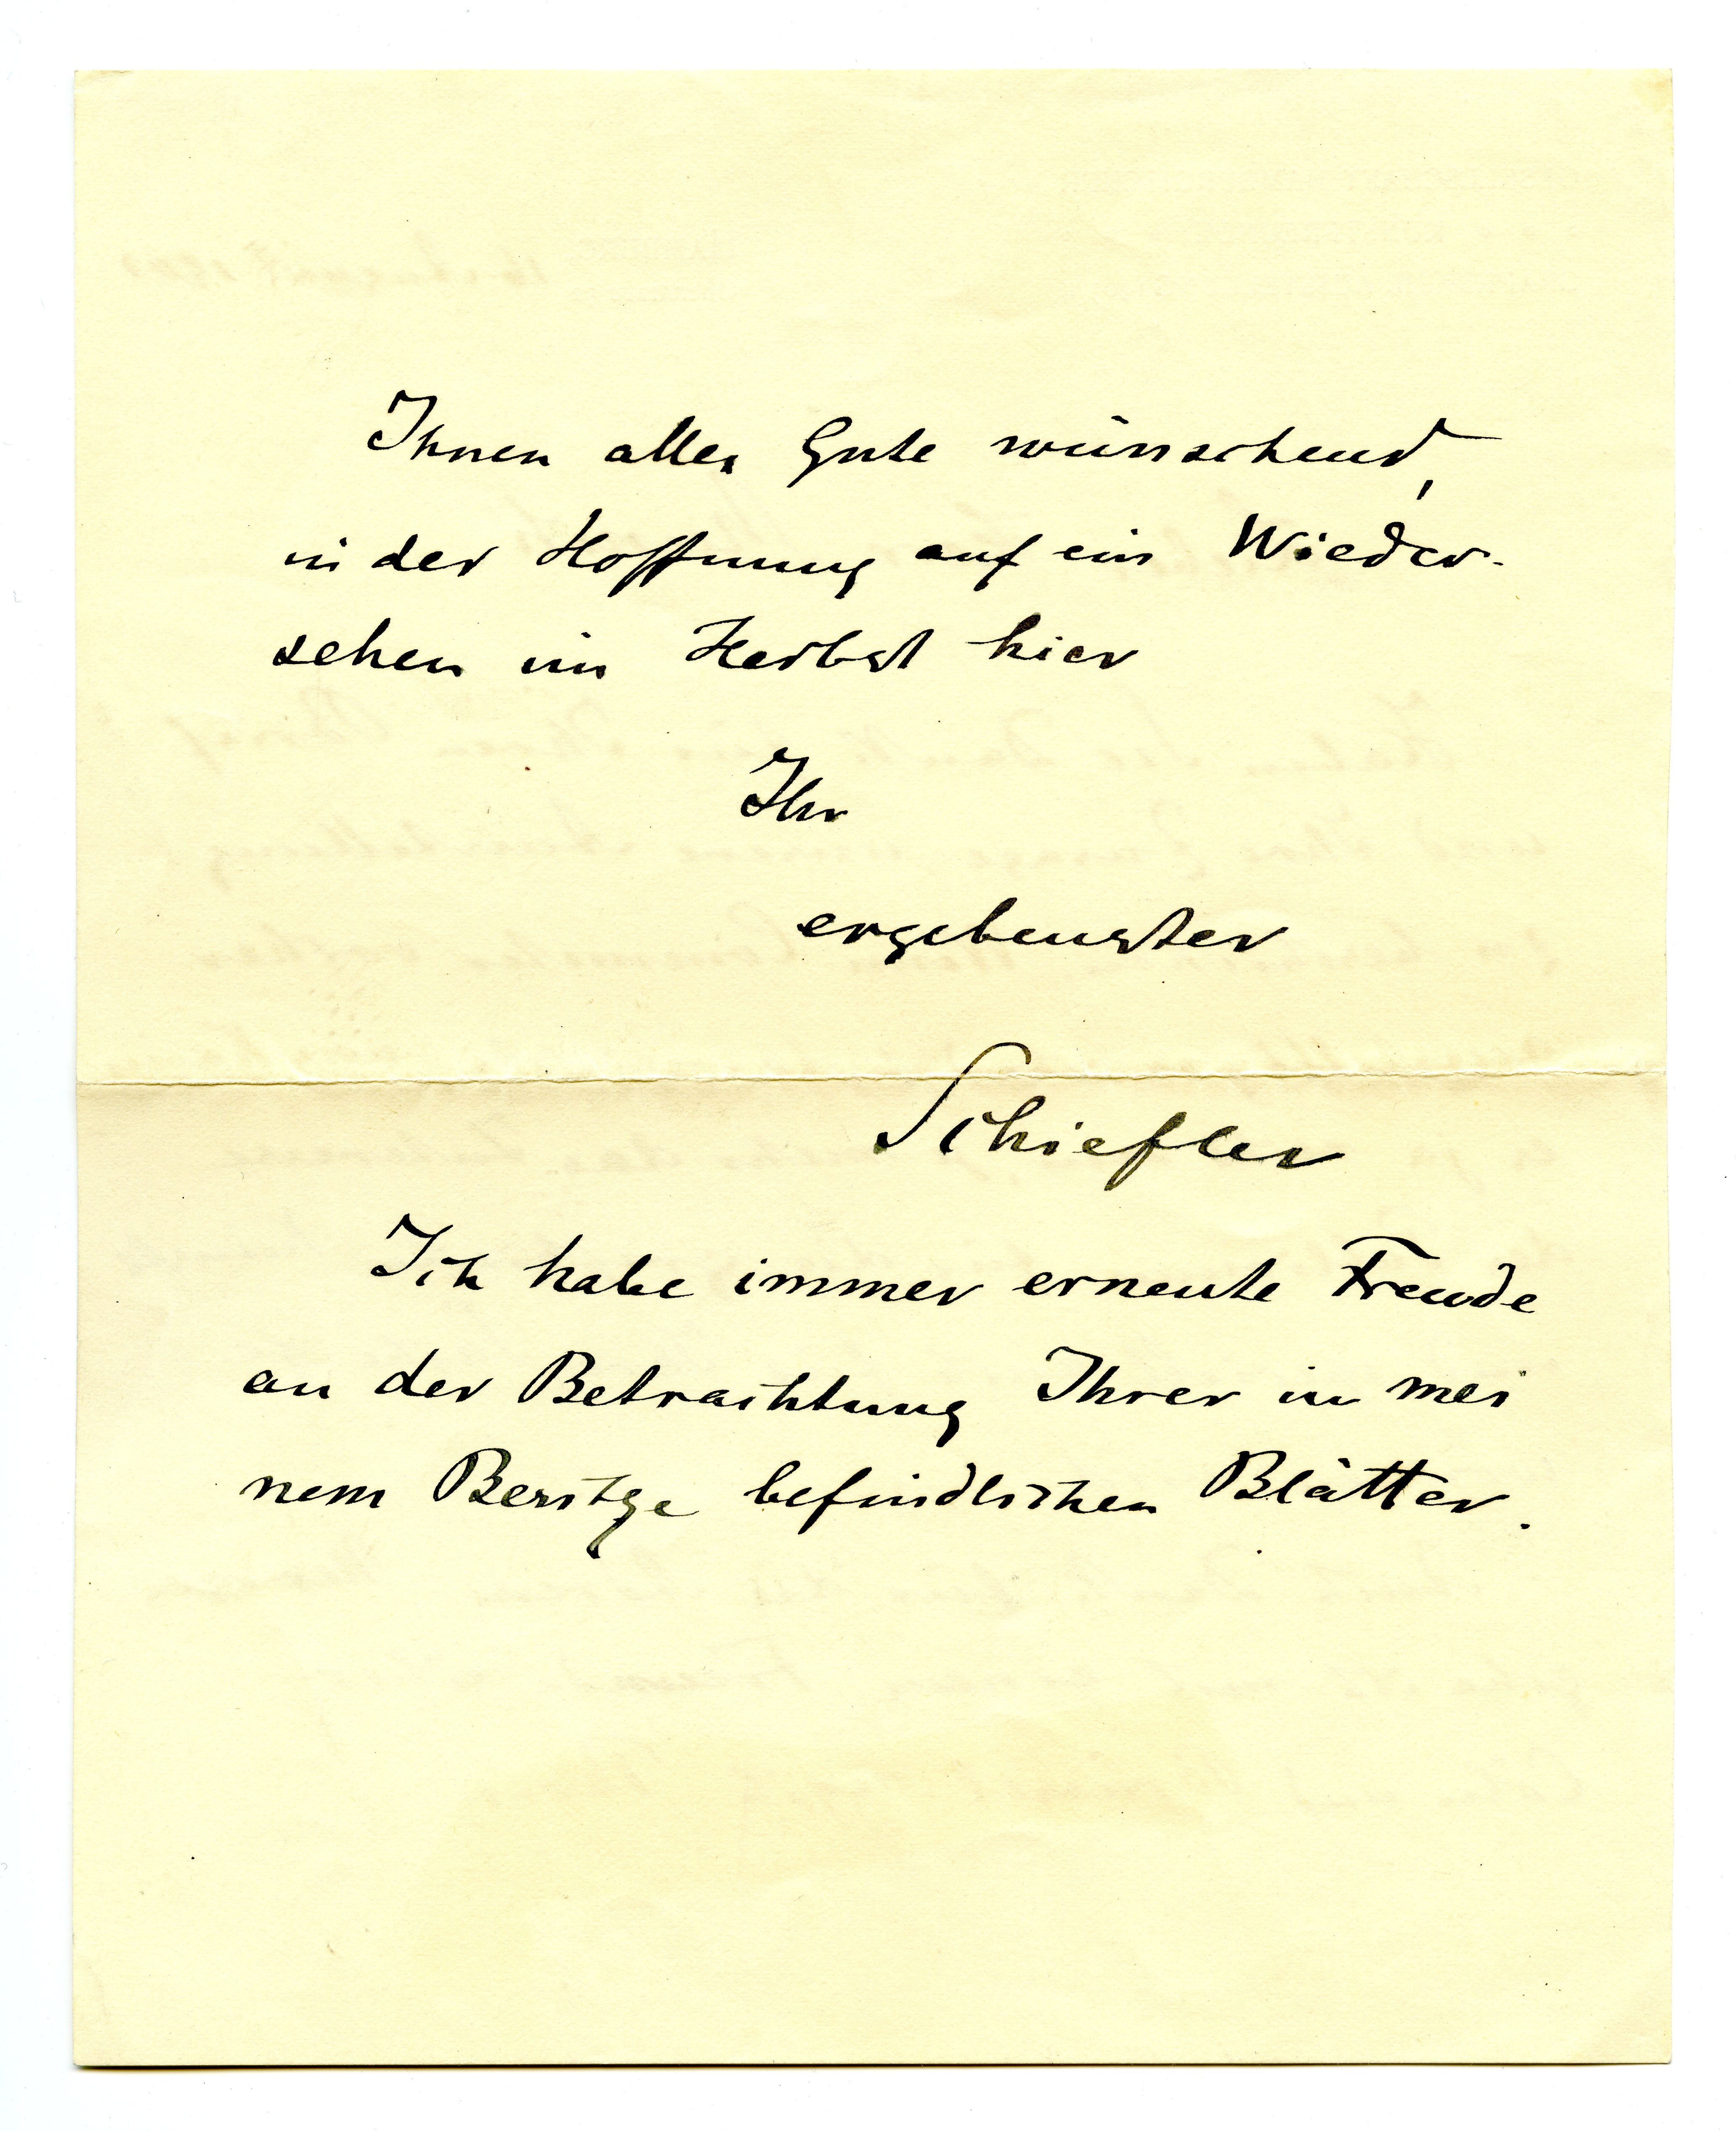 Ihnen alles Gute wünschend,
in der Hoffnung auf ein Wieder-
sehen im Herbst hier
Ihr
ergebenster
Schiefler
Ich habe immer erneute Freude
an der Betrachtung Ihrer in mei
nem Besitze befindlichen Blätter.